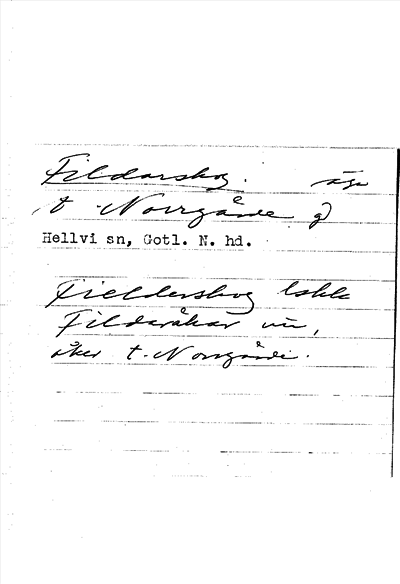 Fildarskog. äga
t. Norrgårde g)
Hellvi sn, Gotl. N. hd.
Fielderskog
Filderåkar nu,
åker t. Norrgårde.